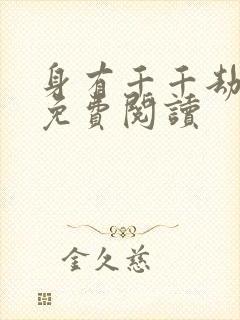 身有千千劫
免費閱讀
金久慈